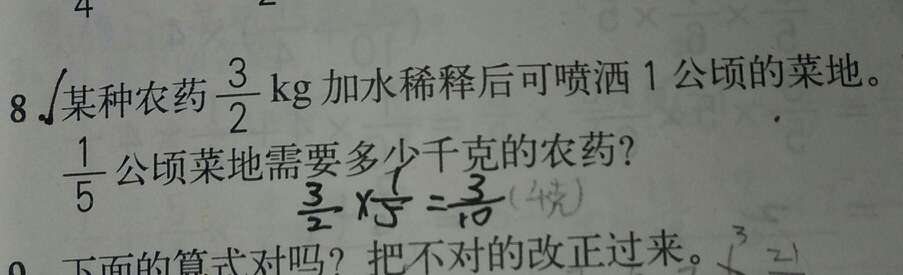 4
8. 某种农药 3/2 kg 加水稀释后可喷洒 1 公顷的菜地。
1/5 公顷菜地需要多少千克的农药?
3/2 × 1/5 = 3/10 (千克)
9. 下面的算式对吗? 把不对的改正过来。 3 21